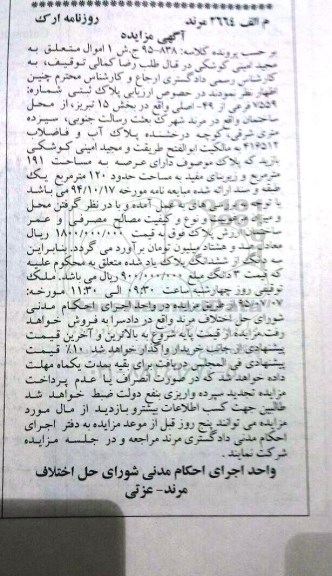 م الف ۲۶۶۴ مرند روزنامه ارک
آگهی مزایده
بر حسب پرونده کلاسه: ۸۳۸-۹۵ ح.ش ۱ اموال متعلق به
مجید امینی کوشکی در قبال طلب رضا کمالی توقیف، به
کارشناس رسمی دادگستری ارجاع و کارشناس محترم چنین
اظهار نظر نمودند در خصوص ارزیابی پلاک ثبتی شماره:
۷۵۵۹ فرعی از ۴۹- اصلی واقع در بخش ۱۵ تبریز، از محل
ساختمان واقع در مرند شهرک بعثت رسالت جنوبی، سیزده
متری شرقی کوچه درخشنده پلاک آب و فاضلاب
۴۱۴۵۱۲ به مالکیت ابوالفتح طریقت و مجید امینی کوشکی
بازدید که پلاک موصوف دارای عرصه به مساحت ۱۹۱
مترمربع و زیربنای مفید به مساحت حدود ۱۲۰ مترمربع یک
طبقه و سند ارائه شده مبایعه نامه مورخه ۹۴/۱۰/۱۷ می باشد
با توجه به بررسی های بعمل آمده و با در نظر گرفتن محل
و موقعیت و نوع و کیفیت مصالح مصرفی و عمر
ساختمان ارزش پلاک فوق به قیمت ۱۸۰۰/۰۰۰/۰۰۰ ریال
معادل صد و هشتاد میلیون تومان برآورد می گردد. بنابراین
سه دانگ از ششدانگ پلاک یاد شده متعلق به محکوم علیه
که قیمت ۳ دانگ مبلغ ۹۰۰/۰۰۰/۰۰۰ ریال می باشد. ملک
توقیفی روز چهارشنبه ساعت ۰۹:۳۰ الی ۱۱:۳۰ مورخه:
۹۵/۰۷/۰۷ از طریق مزایده در واحد اجرای احکام مدنی
شورای حل اختلاف مرند واقع در دادسرا به فروش خواهد
رفت. مزایده از قیمت پایه شروع به بالاترین و آخرین قیمت
پیشنهادی از جانب خریدار واگذار خواهد شد ۱۰٪ قیمت
پیشنهادی فی المجلس دریافت برای بقیه بمدت یکماه مهلت
داده خواهد شد که در صورت انصراف یا عدم پرداخت
مزایده تجدید سپرده واریزی بنفع دولت ضبط خواهد شد
طالبین جهت کسب اطلاعات بیشتر و بازدید از مال مورد
مزایده می توانند پنج روز قبل از موعد مزایده به دفتر اجرای
احکام مدنی دادگستری مرند مراجعه و در جلسه مزایده
شرکت نمایند.
واحد اجرای احکام مدنی شورای حل اختلاف
مرند- عزتی